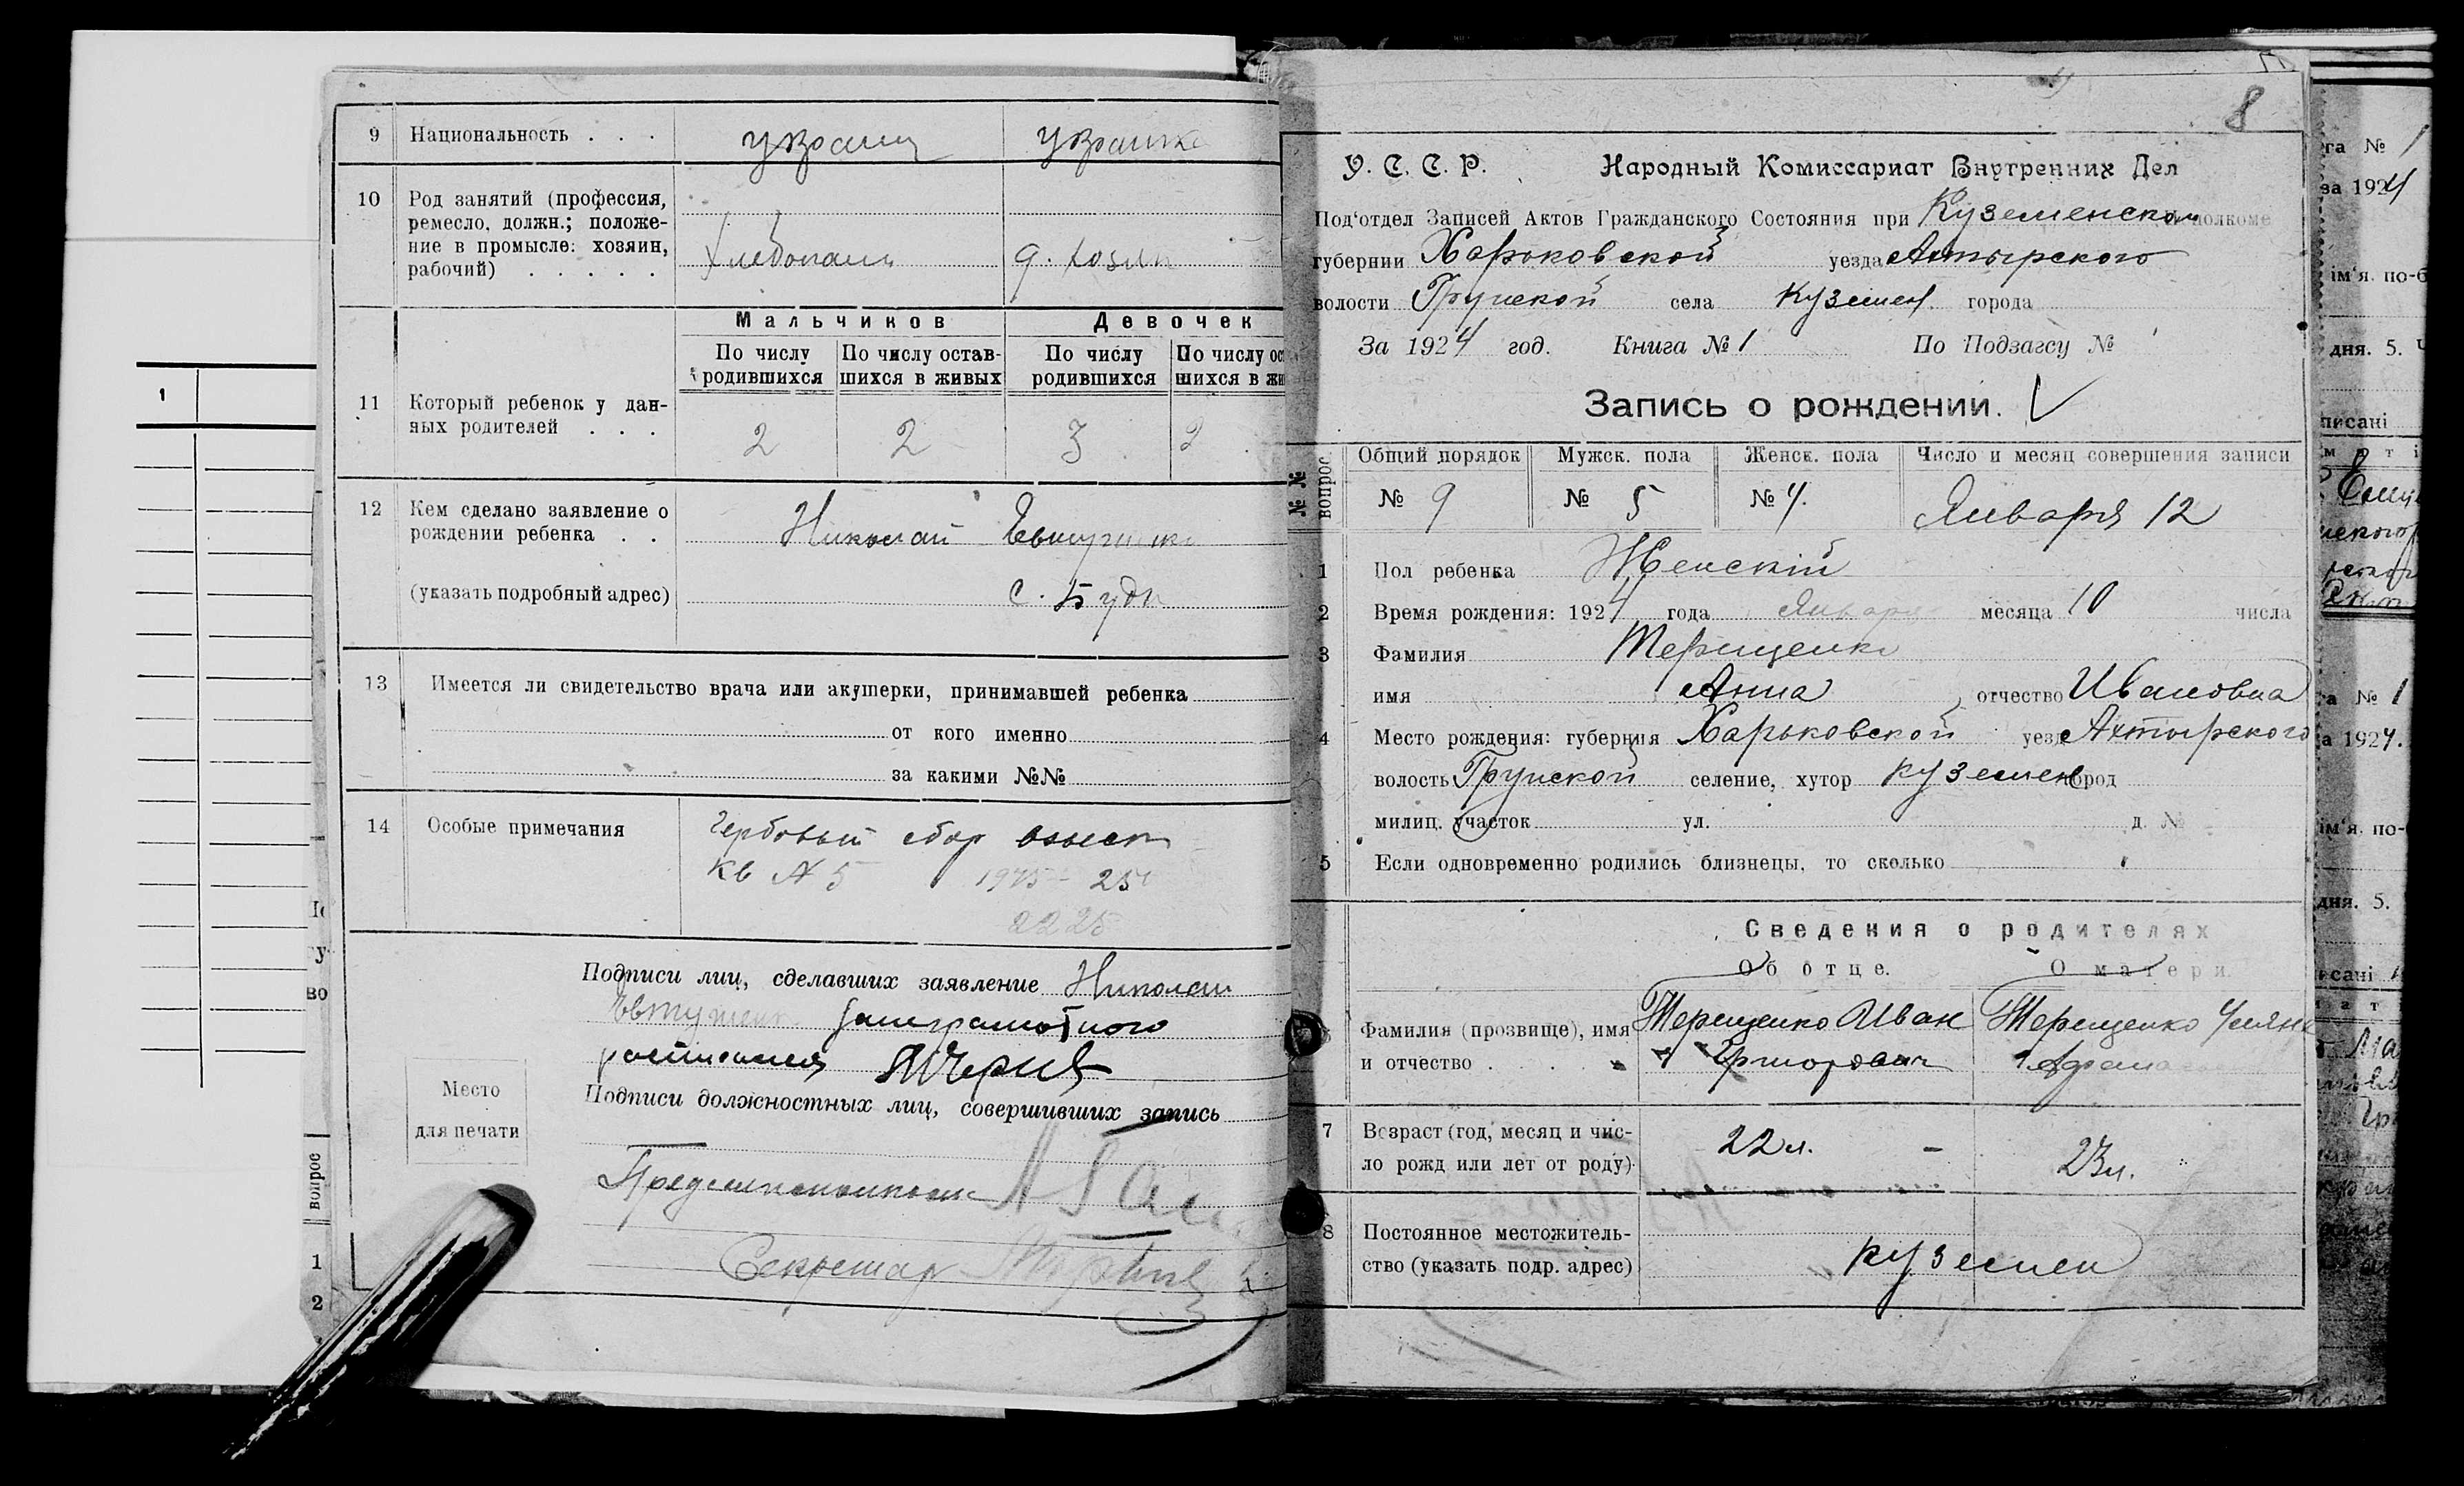 9 Национальность . . . украин украинка
10 Род занятий (профессия,
ремесло, должн.; положе-
ние в промысле: хозяин,
рабочий) . . . . . Хлебопаш д. хозяи
Мальчиков Девочек
По числу родившихся По числу остав-шихся в живых По числу родившихся По числу ос
шихся в жи
11 Который ребенок у дан-
ных родителей . . . 2 2 3 2
12 Кем сделано заявление о
рождении ребенка . . Николай Евтушенко
(указать подробный адрес) с. Буды
13 Имеется ли свидетельство врача или акушерки, принимавшей ребенка
от кого именно
за какими №№
14 Особые примечания Гербовый сбор взыск
кв № 5 1975 - 25
2225
Подписи лиц, сделавших заявление Николай
Евтушенк неграмотного
расписался
Подписи должностных лиц, совершивших запись
Место
для печати
Предисполкома
Секретар
8
У. С. С. Р. Народный Комиссариат Внутренних Дел
Под'отдел Записей Актов Гражданского Состояния при Куземенском полкоме
губернии Харьковской уезда Ахтырского
волости Грунской села Куземен города
За 1924 год. Книга № 1 По Подзагсу №
Запись о рождении. V
№№ вопрос. Общий порядок Мужск. пола Женск. пола Число и месяц совершения записи
№ 9 № 5 № 4. Января 12
1 Пол ребенка Женский
2 Время рождения: 1924 года Января месяца 10 числа
3 Фамилия Терещенко
имя Анна отчество Ивановна
4 Место рождения: губерния Харьковской уезд Ахтырского
волость Грунской селение, хутор Куземен город
милиц. участок ул. д. №
5 Если одновременно родились близнецы, то сколько
Сведения о родителях
Об отце. О матери.
Фамилия (прозвище), имя Терещенко Иван Терещенко Ульян
и отчество . . . . Григорович
7 Возраст (год, месяц и чис-
ло рожд или лет от роду) 22 л. 23 л.
8 Постоянное местожитель-
ство (указать подр. адрес) Куземен
1
вопрос
1
2
га № 1
за 1924
ім'я. по-б
дня. 5.
писані
га № 1
а 1924.
ім'я. по-
дня. 5.